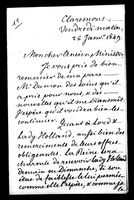 Claremont,
Vendredi matin
26 Janr. 1849.
Mon cher Ancien Ministre
Je vous prie de bien
remercier de ma part
Mr. Dumon des soins qu'il
a pris pour nous, & des
nouvelles qu'il me transmet.
J'espère qu'il voudra bien les
continuer. Quant à Lord &
Lady Holland, aussi bien des
remerciments de leurs offres
obligeantes. La Reine sera
charmée de recevoir Lady Holland
Demain ou Dimanche, si son
comme elle l'espère, & comme je